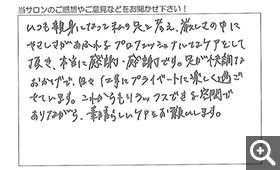 当サロンのご感想やご意見などをお聞かせ下さい！
いつも親身になって私の足を考え、厳しさの中に
やさしさがあふれるプロフェッショナルなケアをして
頂き、本当に感謝・感謝です。足が快調な
おかげで、日々仕事にプライベートに楽しく過ご
せています。これからもリラックスできる空間で
ありながら、素晴らしいケアをお願いします。